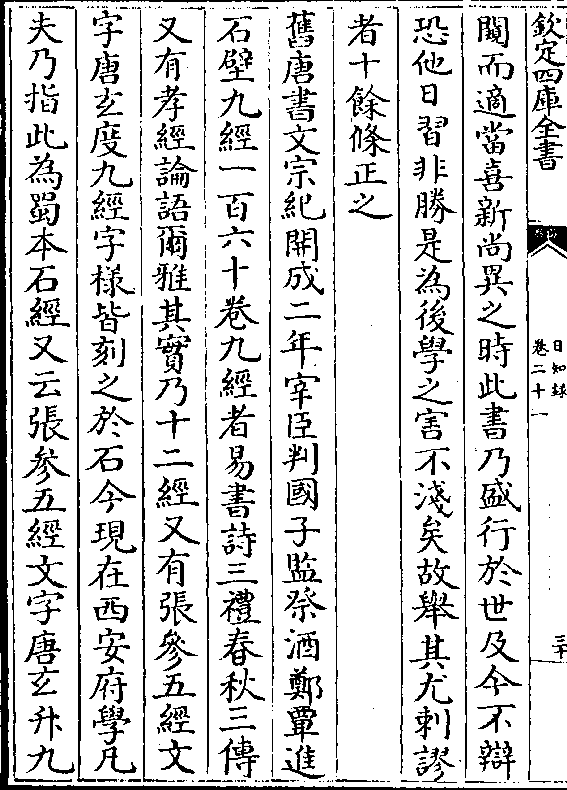 欽定四庫全書
日知錄
卷二十一
三十
闕而適當喜新尚異之時此書乃盛行於世及今不辯
恐他日習非勝是為後學之害不淺矣故舉其尤剌謬
者十餘條正之
舊唐書文宗紀開成二年宰臣判國子監祭酒鄭覃進
石壁九經一百六十卷九經者易書詩三禮春秋三傳
又有孝經論語爾雅其實乃十二經又有張參五經文
字唐玄度九經字様皆刻之於石今現在西安府學凡
夫乃指此為蜀本石經又云張參五經文字唐玄升九